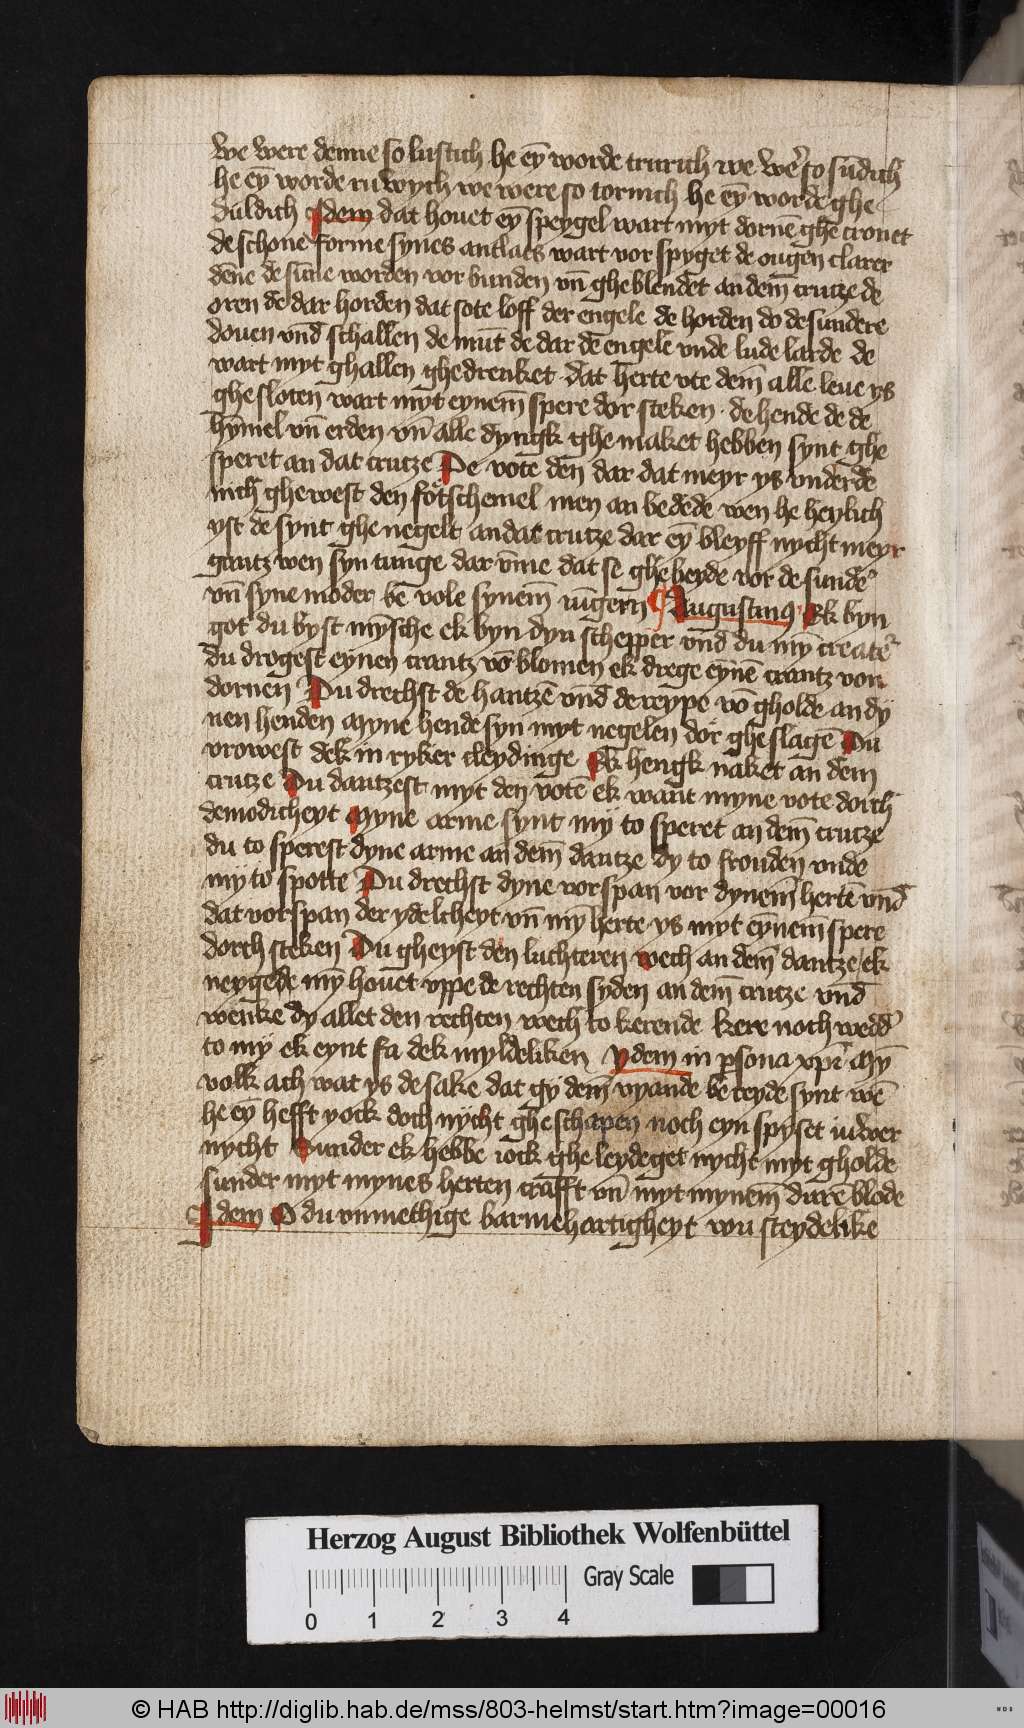 we were denne so lustich he eȳ worde trurich we weͬ so sūdich
he eȳ worde ruwych we were so tornich he eȳ worde ghe
duldich Idem dat houet eȳ speygel wart myt dornē ghe cronet
de schone forme synes antlaes wart vor spyget de ougen clarer
dēne de sūne worden vor bunden vn̄ gheblendet an dem̄ crutze de
oren de dar horden dat sote loff der engele de horden do de sundere
douen vnd̄ schallen de mūt de dar dē engelē vnde lude larde de
wart myt ghallen ghedrenket dat herte vte dem̄ alle leue ys
ghesloten wart myt eynem̄ spere dor steken de hende de de
hȳmel vn̄ erden vn̄ alle dyngk ghemaket hebben synt ghe
speret an dat crutze De vote den dar dat meyr ys vnderde
nich ghewest den fo̊tschemel men an bedede wen he heylich
yst de synt ghe negelt an dat crutze dar eȳ bleyff nycht meyr
gantz wen syn tunge dar vm̄e dat se ghebeyde vor de sundeͬ
vn̄ syne moder bē vole synem̄ iūgern ¶ Augustinꝰ Ek byn
got du byst mȳsche ek byn dyn schepper vnd̄ du mȳ createͬ
du drogest eynen crantz vō blomen ek drege eynē crantz von
dornen Du drechst de hantzē vnd̄ de reype vō gholde an dy
nen henden Myne hende syn myt negelen dor gheslagē Du
vrowest dek in ryker cleydinge Ek hengk naket an dem
crutze Du dantzest myt den votē ek want myne vote dorch
demodicheyt Myne arme synt my to speret an dem̄ crutze
du to sperest dyne arme an dem̄ dantze dy to frouden vnde
my to spotte Du drechst dyne vorspan vor dynem̄ hertē vnd̄
dat vorspan der ydelcheyt vn̄ mȳ herte ys myt eynem̄ spere
dorch steken Du gheyst den luchteren wech an dem̄ dantze ek
neygede mȳ houet vppe de rechten syden an dem̄ crutze vnd̄
wenke dy allet den rechten wech to kerende kere noch weddͬ
to my ek eynt fa dek myldeliken ydem in ꝑsona xp̄i Mȳ
volk ach wat ys de sake dat gy dem̄ vyande bē reyde synt wē
he eȳ hefft yock doch nycht gheschapen noch eyn spyset iuwer
nycht Sunder ek hebbe iock ghe leydeget nycht myt gholde
sunder myt mynes herten crafft vn̄ myt mynem̄ durē blode
Idem O du vnmethige barmehartigheyt wu steydelike
Herzog August Bibliothek Wolfenbüttel
Gray Scale
0 1 2 3 4
© HAB http://diglib.hab.de/mss/803-helmst/start.htm?image=00016